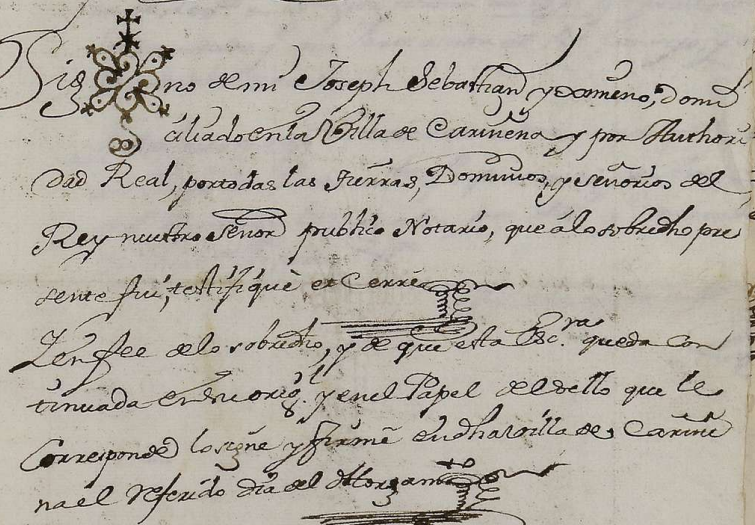 Sig no de mi Joseph Sebastian y Ximeno, domi
ciliado en la Villa de Cariñena y por Authori
dad Real, por todas las Tierras, Dominios, y señorios del
Rey nuestro Señor publico Notario, que á lo sobredho pre
sente fui, testifiqué et Cerré
Y en fee de lo sobredho, y de que esta Esc.ra queda con
tinuada en su orig.l y en el Papel del sello que le
Corresponde lo signé y firmé en dha villa de Cariñe
na el referido dia del otorgam.to